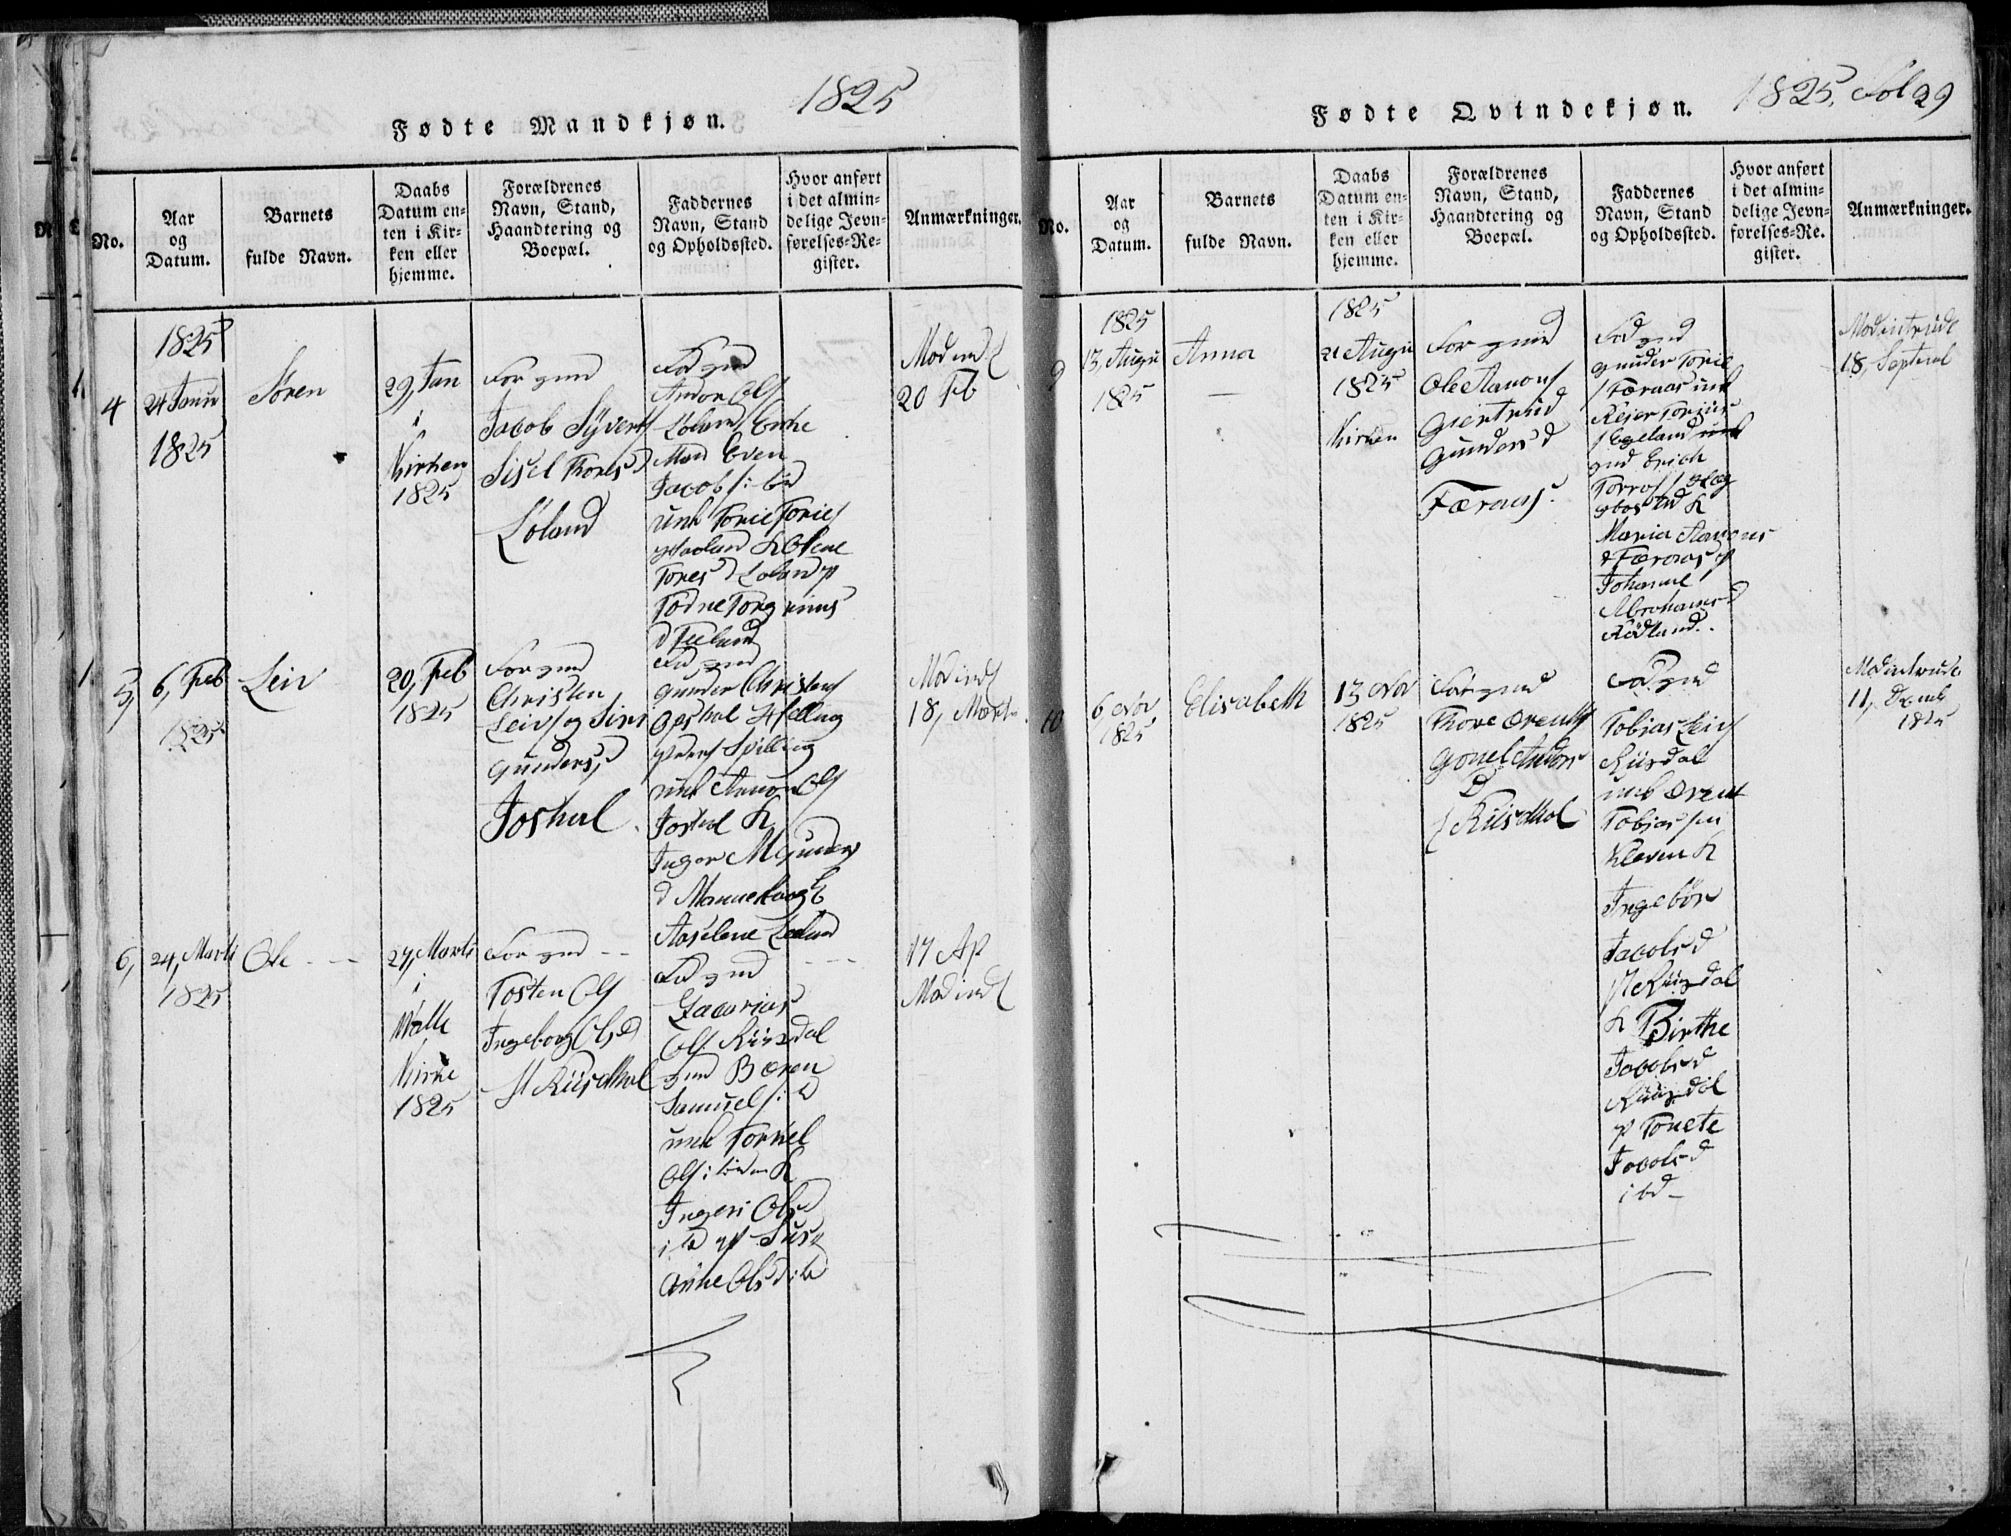 1825
Fødte Mandkjøn.
No.
Aar
og
Datum.
Barnets
fulde Navn.
Daabs
Datum en-
ten i Kir-
ken eller
hjemme.
Forældrenes
Navn, Stand,
Haandtering og
Boepæl.
Faddernes
Navn, Stand
og Opholdssted.
Hvor anført
i det almin-
delige Jevn-
førelses-Re-
gister.
Anmærkninger.
4
1825
24 Janu
1825
Sören
29, Jan
i
Kirken
1825
For gmd
Jacob Syvert
Sisel Thores D
Loland
Fad gmd
Andor Ols
Loland Enke
Mad Even
Jacobs: ibd
unk Torie Tories
K Olene
Tores D Loland p
Todne Torgrims
D
Mod ind
20 Feb
5,
6, Feb
1825
Leiv
20, Feb
1825
For gmd
Christen
Leivs og Siri
Gunders D
Joshul
Fad gmd
Gunder Christens
Opshul
Spilling
unk Anon Ols
Joshul K
Inger M Gunders
D
Aaselene
Mod ind
18, Marti
6,
24, Marti
1825
Ole
27, Marti
i
Walle
Kirke
1825
For gmd
Tosten Ols
Ingeborg Ols D
Riisdhal
Fad gmd
Zacarias
Ols Riisdal
gmd Bæren
Samuels: ibd
unk Torkel
Ols: ibidm K
Ingeri Ols D
ibd p Sus
Anne Ols D ibd
17 Ap
Mod ind
1825. Fol 29
Fødte Qvindekjøn.
No.
Aar
og
Datum.
Barnets
fulde Navn.
Daabs
Datum en-
ten i Kir-
ken eller
hjemme.
Forældrenes
Navn, Stand,
Haandtering og
Boepæl.
Faddernes
Navn, Stand
og Opholdssted.
Hvor anført
i det almin-
delige Jevn-
førelses-Re-
gister.
Anmærkninger.
9
1825
13, Augu
1825
Anna
1825
21 Augu
1825
Kirken
For gmd
Ole Aanons
Giertrud
Gunders D
Færaas.
Fad gmd
Gunder Torie
Færaas unk
Reier Tories
Egeland
gmd Erich
K
Maria Aanons
D Færaas p
Johanne
Abrahams D
Rödland.
Mod intrude
18, Septemb
10
6 Nov
1825
Elisabeth
13 Nov
1825
For gmd
Thore Orents
Gonel Andors
D
Riisdhal
Fad gmd
Tobias Leivs
Riisdal
unk Orent
Tobiassen
Kleven K
Ingebör
Jacobs D
Riisdal
K Birthe
Jacobs D
Riisdal
p Tonete
Jacobs D
ibd
Mod intrude
11, Decemb
1825